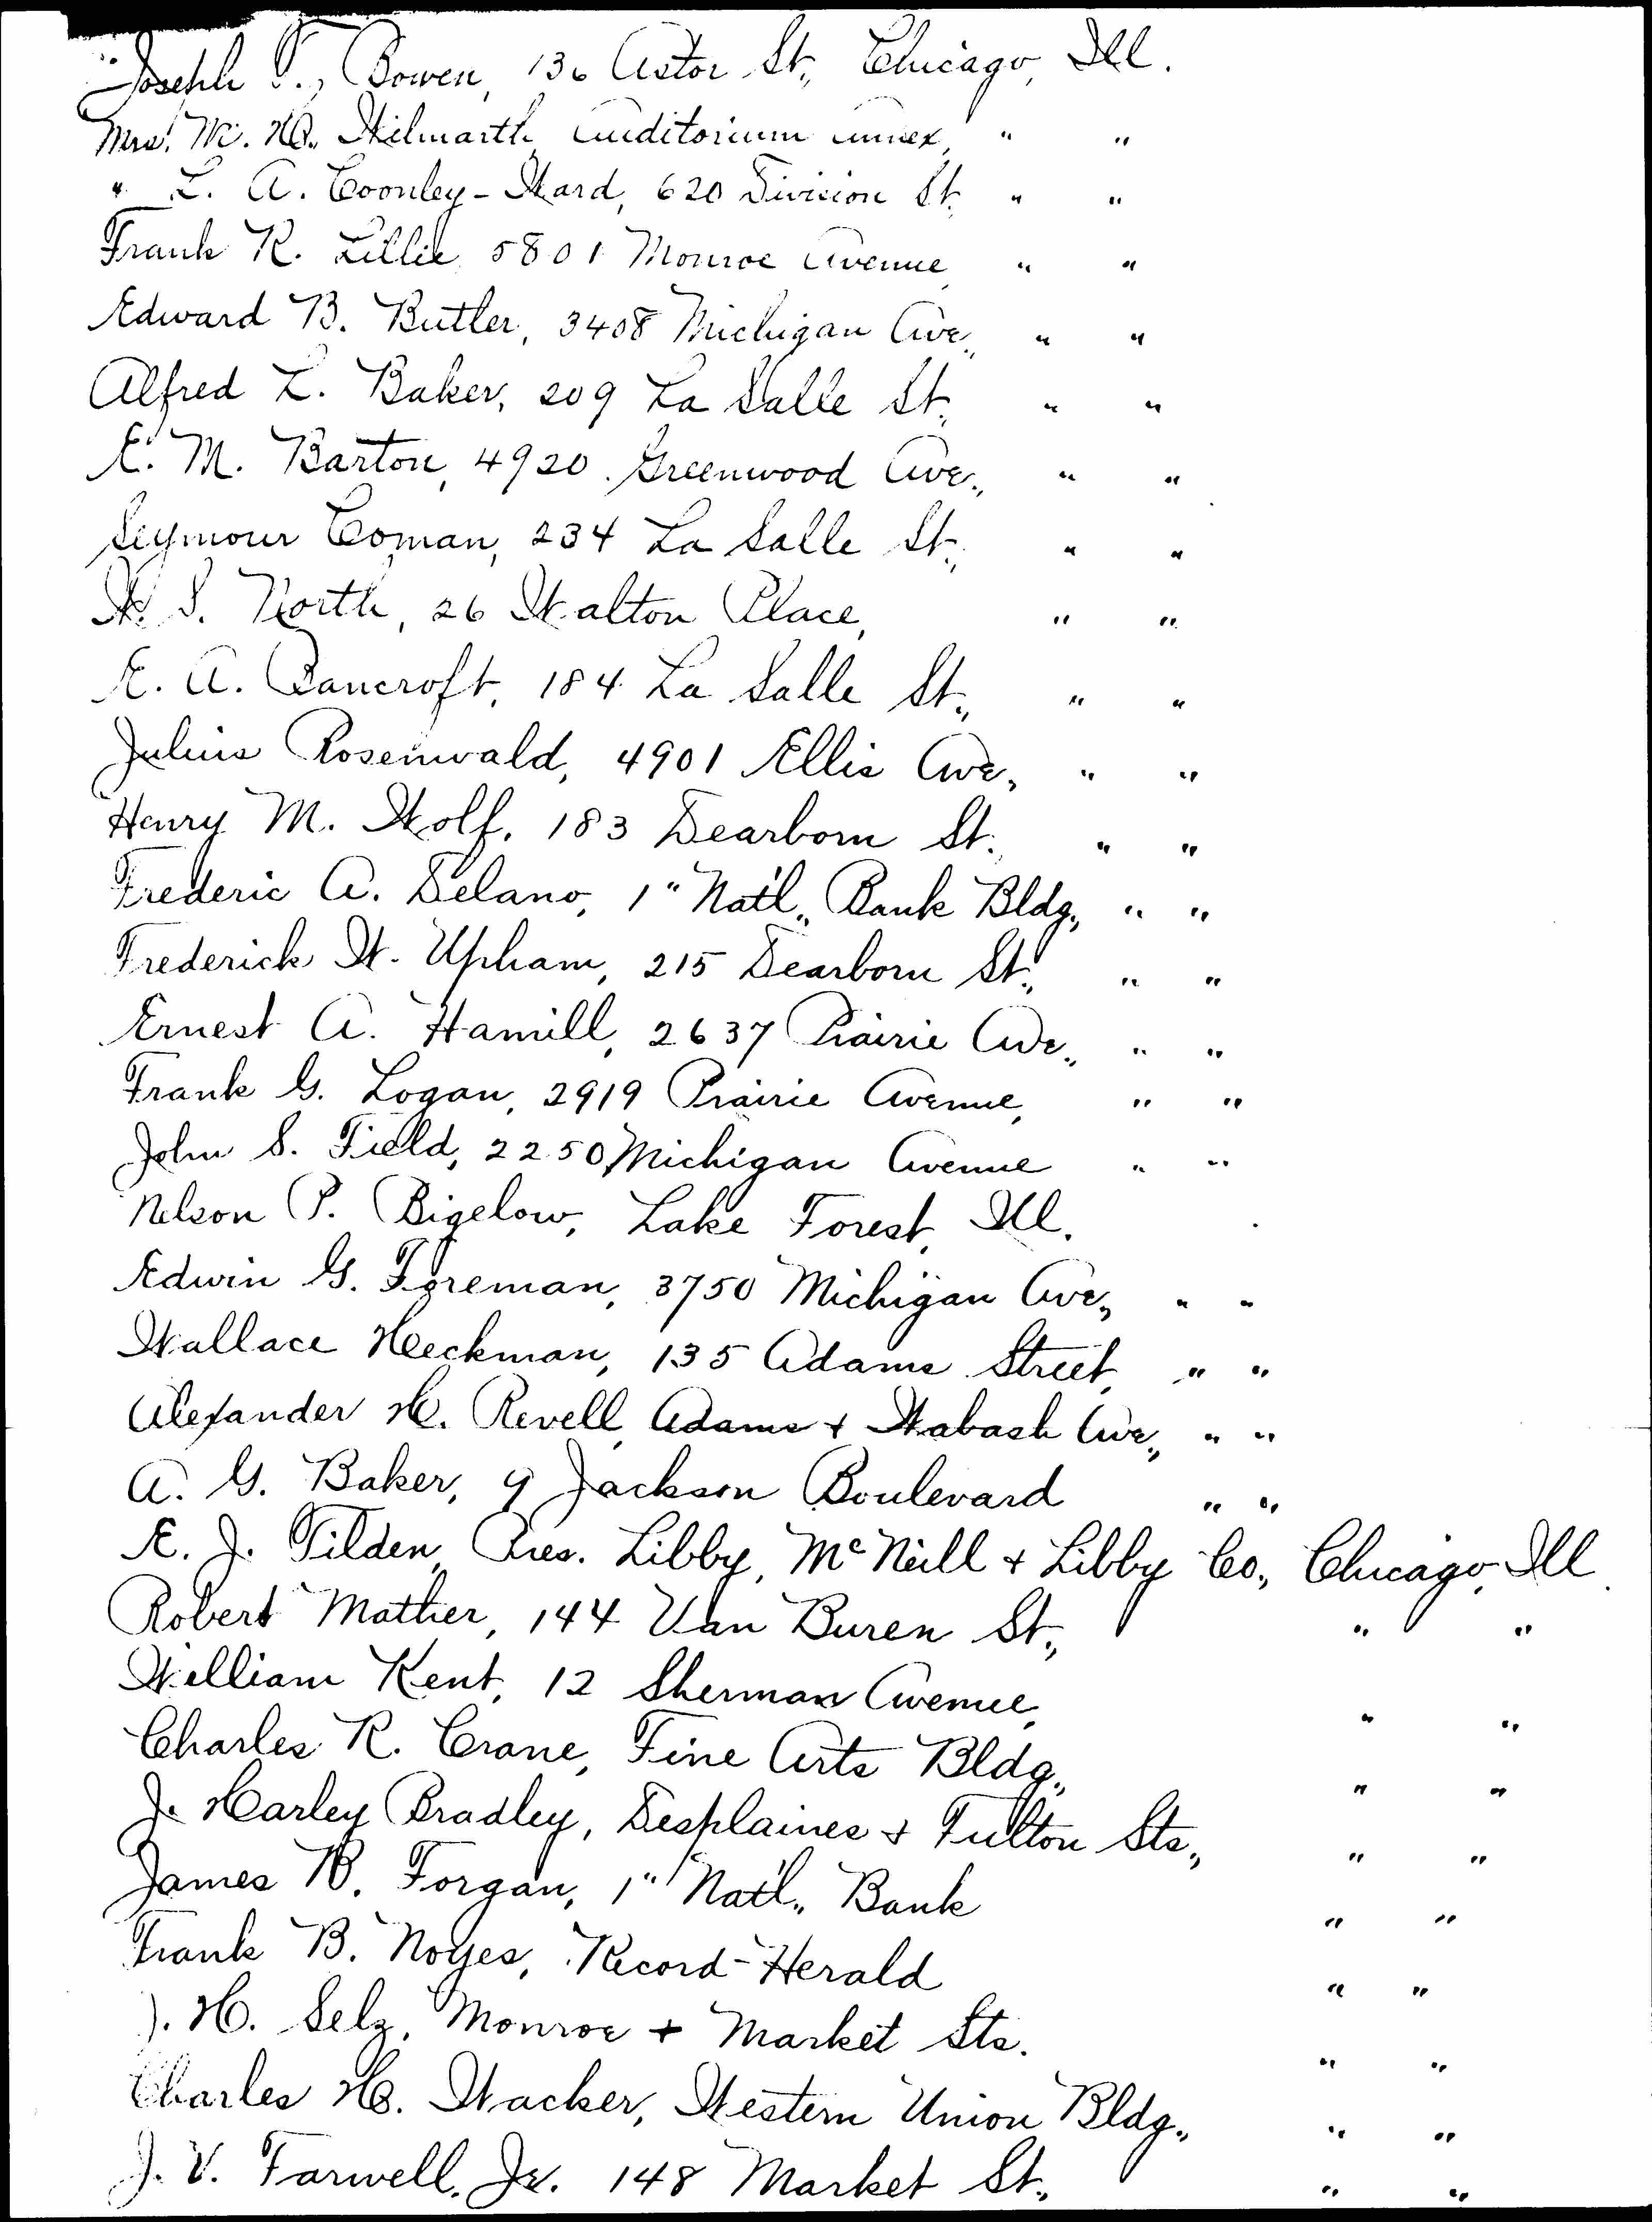 Joseph T., Bowen, 136 Astor St., Chicago, Ill.
Mrs. M. H. Wilmarth, Auditorium Annex, " "
" L. A. Coonley-Ward, 620 Division St. " "
Frank R. Lillie 5801 Monroe Avenue, " "
Edward B. Butler, 3408 Michigan Ave., " "
Alfred L. Baker, 209 La Salle St., " "
E. M. Barton, 4920 Greenwood Ave., " "
Seymour Coman, 234 La Salle St., " "
F. S. North, 26 Walton Place, " "
E. A. Bancroft, 184 La Salle St., " "
Julius Rosenwald, 4901 Ellis Ave., " "
Henry M. Wolf, 183 Dearborn St., " "
Frederic A. Delano, 1" Nat'l., Bank Bldg., " "
Frederick W. Upham, 215 Dearborn St., " "
Ernest A. Hamill, 2637 Prairie Ave., " "
Frank G. Logan, 2919 Prairie Avenue, " "
John S. Field, 2250 Michigan Avenue " "
Nelson P. Bigelow, Lake Forest, Ill.
Edwin G. Foreman, 3750 Michigan Ave., " "
Wallace Heckman, 135 Adams Street, " "
Alexander H. Revell, Adams + Wabash Ave., " "
A. G. Baker, 9 Jackson Boulevard " "
E. J. Tilden, Pres. Libby, McNeill + Libby Co., Chicago, Ill.
Robert Mather, 144 Van Buren St., " "
William Kent, 12 Sherman Avenue, " "
Charles R. Crane, Fine Arts Bldg., " "
J. Harley Bradley, Desplaines + Fulton Sts., " "
James B. Forgan, 1" Nat'l., Bank " "
Frank B. Noyes, Record-Herald " "
J. H. Selz, Monroe + Market Sts. " "
Charles H. Wacker, Western Union Bldg., " "
J. V. Farwell, Jr. 148 Market St., " "